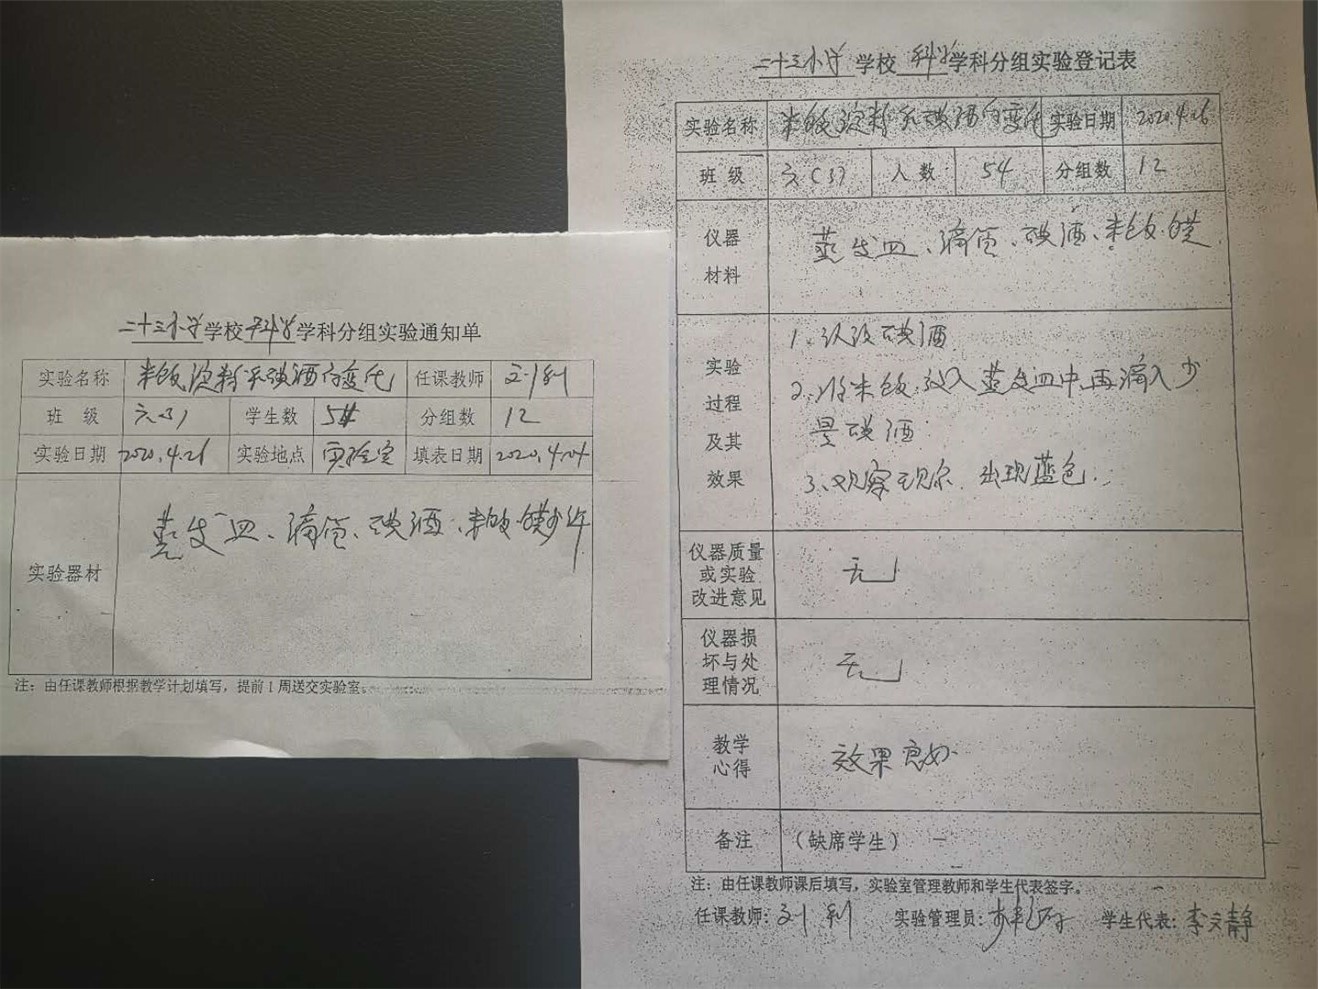 二十三小学学校科学学科分组实验通知单
实验名称 米饭淀粉和碘酒的变化 任课教师 刘利
班 级 六(3) 学生数 54 分组数 12
实验日期 2020.4.26 实验地点 实验室 填表日期 2020.4.
实验器材 蒸发皿、滴管、碘酒、米饭、馍少许
注：由任课教师根据教学计划填写，提前1周送交实验室。
二十三小学学校科学学科分组实验登记表
实验名称 米饭淀粉和碘酒的变化 实验日期 2020.4.26
班 级 六(3) 人 数 54 分组数 12
仪器材料 蒸发皿、滴管、碘酒、米饭、馍
实验过程及其效果
1、认识碘酒
2、将米饭放入蒸发皿中,再滴入少
量碘酒
3、观察现象,出现蓝色.
仪器质量或实验改进意见 无
仪器损坏与处理情况 无
教学心得 效果良好
备注 (缺席学生) —
注：由任课教师课后填写，实验室管理教师和学生代表签字。
任课教师：刘利 实验管理员： 学生代表：李文静